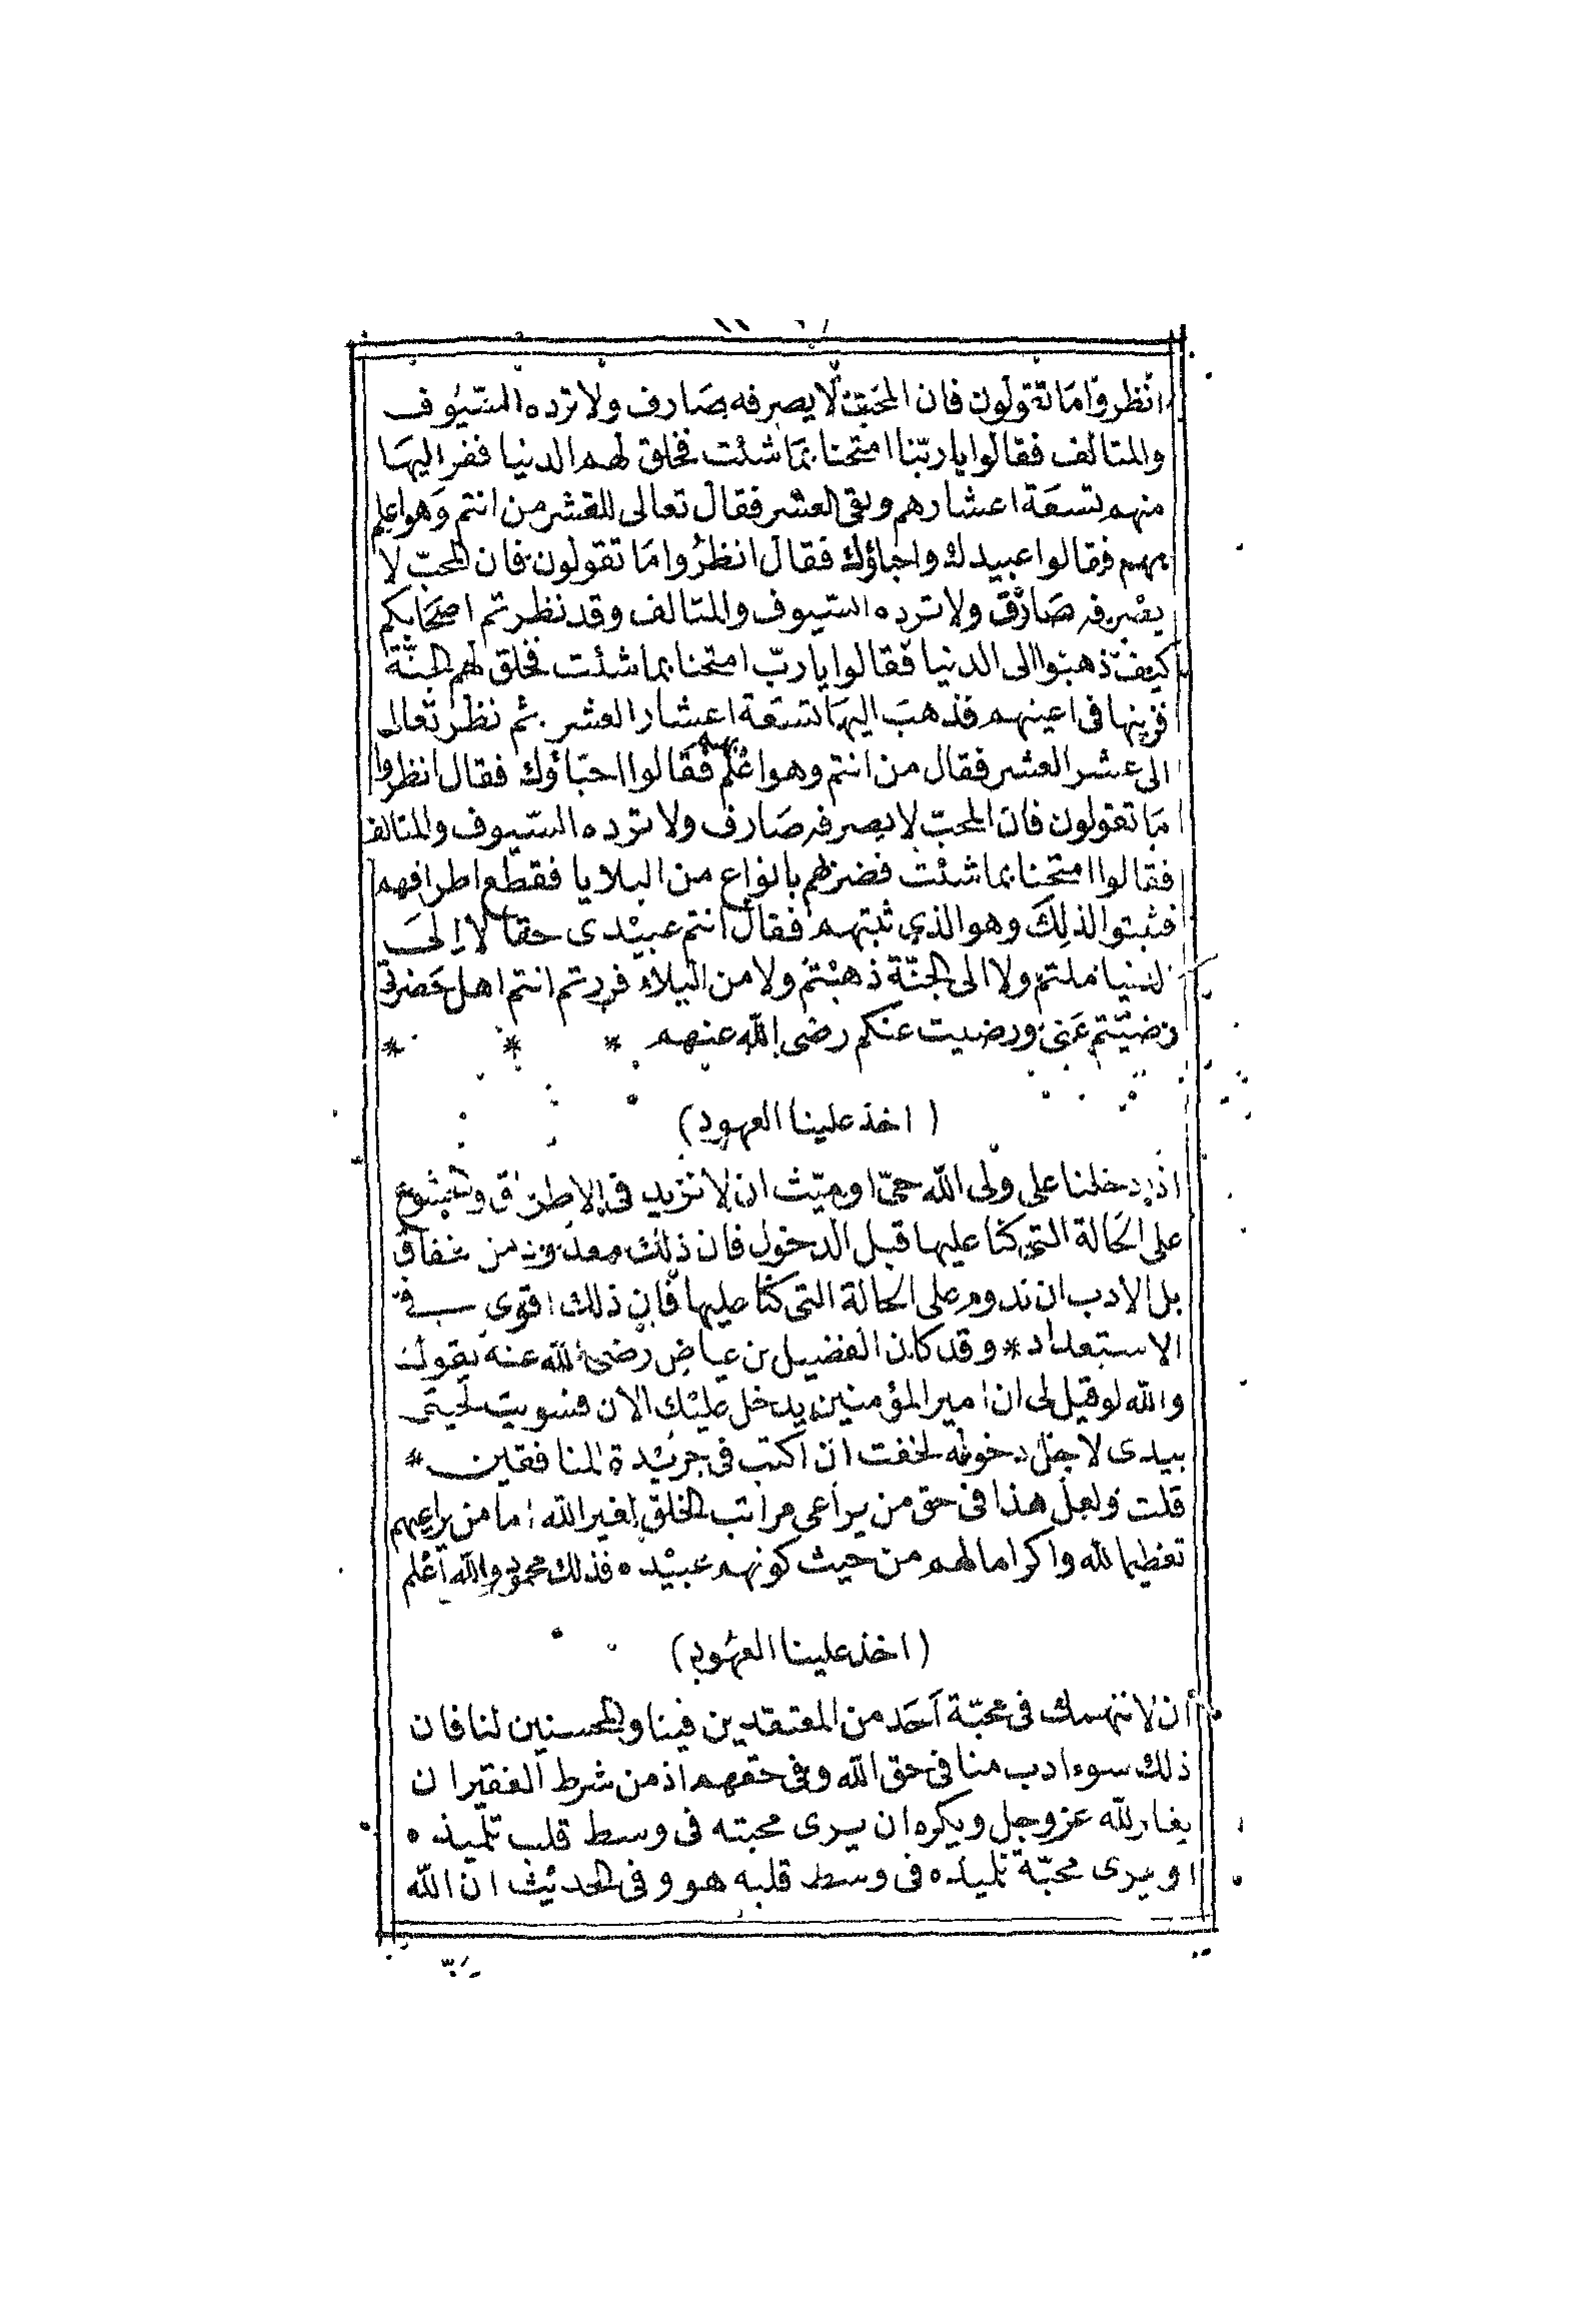 انظروا ما تقولون فان المحبّ لا يصرفه صارف ولا تزده السّيوف
والمتالف فقالوا يا ربّنا امتحنا بمَا شئت فخلق لهم الدنيا ففر اليهَا
منهم تسعَة اعشارهم وبقى العشر فقال تعالى للعشر من انتم وَهو اعلم
بهم فقالوا عبيدك واحباؤك فقال انظرُوا مَا تقولون فان المحبّ لا
يصرفه صَارف ولا ترده السّيوف والمتالف وقد نظرتم اصحَابكم
كيف ذهبوا الى الدنيا فقالوا يا ربّ امتحنا بما شئت فخلق لهم الجنّة
فزينها فى اعينهم فذهبَ اليهَا تسعَة اعشار العشر ثم نظرَ تعالى
الى عشر العشر فقال من انتم وهو اعلم بهم فقالوا احبّاؤك فقال انظروا
مَا تقولون فان المحبّ لا يصرفه صَارف ولا تزده السّيوف والمتالف
فقالوا امتحنا بما شئت فضربهم بانواع من البلايا فقطّع اطرافهم
فثبتوا لذلِكَ وهو الذي ثبتهم فقال انتم عبيْدى حقا لا إلىَ
الدنيا ملتم ولا الى الجنّة ذهبْتمُ ولا من البلاء فررتم انتم اهل حَضرتى
رضيْتم عَنى ورضيت عنكم رضى الله عنهم * * *
( اخذ علينا العهود )
اذا دخلنا على ولى الله حيّا او ميّت ان لا نزيد فى الاطراق والخشوع
على الحَالة التى كنا عليها قبل الدخول فان ذلك معدود من نفاق
بل الادب ان ندوم على الحالة التى كنّا عليها فان ذلك اقوى فى
الاستعداد * وقد كان الفضيل بن عياض رضى الله عنه يقول
والله لو قيل لى ان امير المؤمنين يدخل عليْك الآن فسويت لحيتى
بيدى لاجل دخوله لخفت ان اكتب فى جريْدة المنافقين *
قلت ولعل هذا فى حق من يراعى مراتب الخلق لغير الله اما من يراعيهم
تعظيما لله واكراما لهم من حيث كونهم عبيْده فذلك محمود والله اعْلم
( اخذ علينا العهُود )
أن لا ننهمك فى محبّة اَحَد من المعتقدين فينا والمحسنين لنا فان
ذلك سوء ادب منا فى حق الله وفى حقهم اذ من شرط الفقير ان
يغار لله عز وجل ويكره ان يرى محبته فى وسط قلب تلميذه
او يرى محبّة تلميذه فى وسط قلبه هو وفى الحديث ان الله